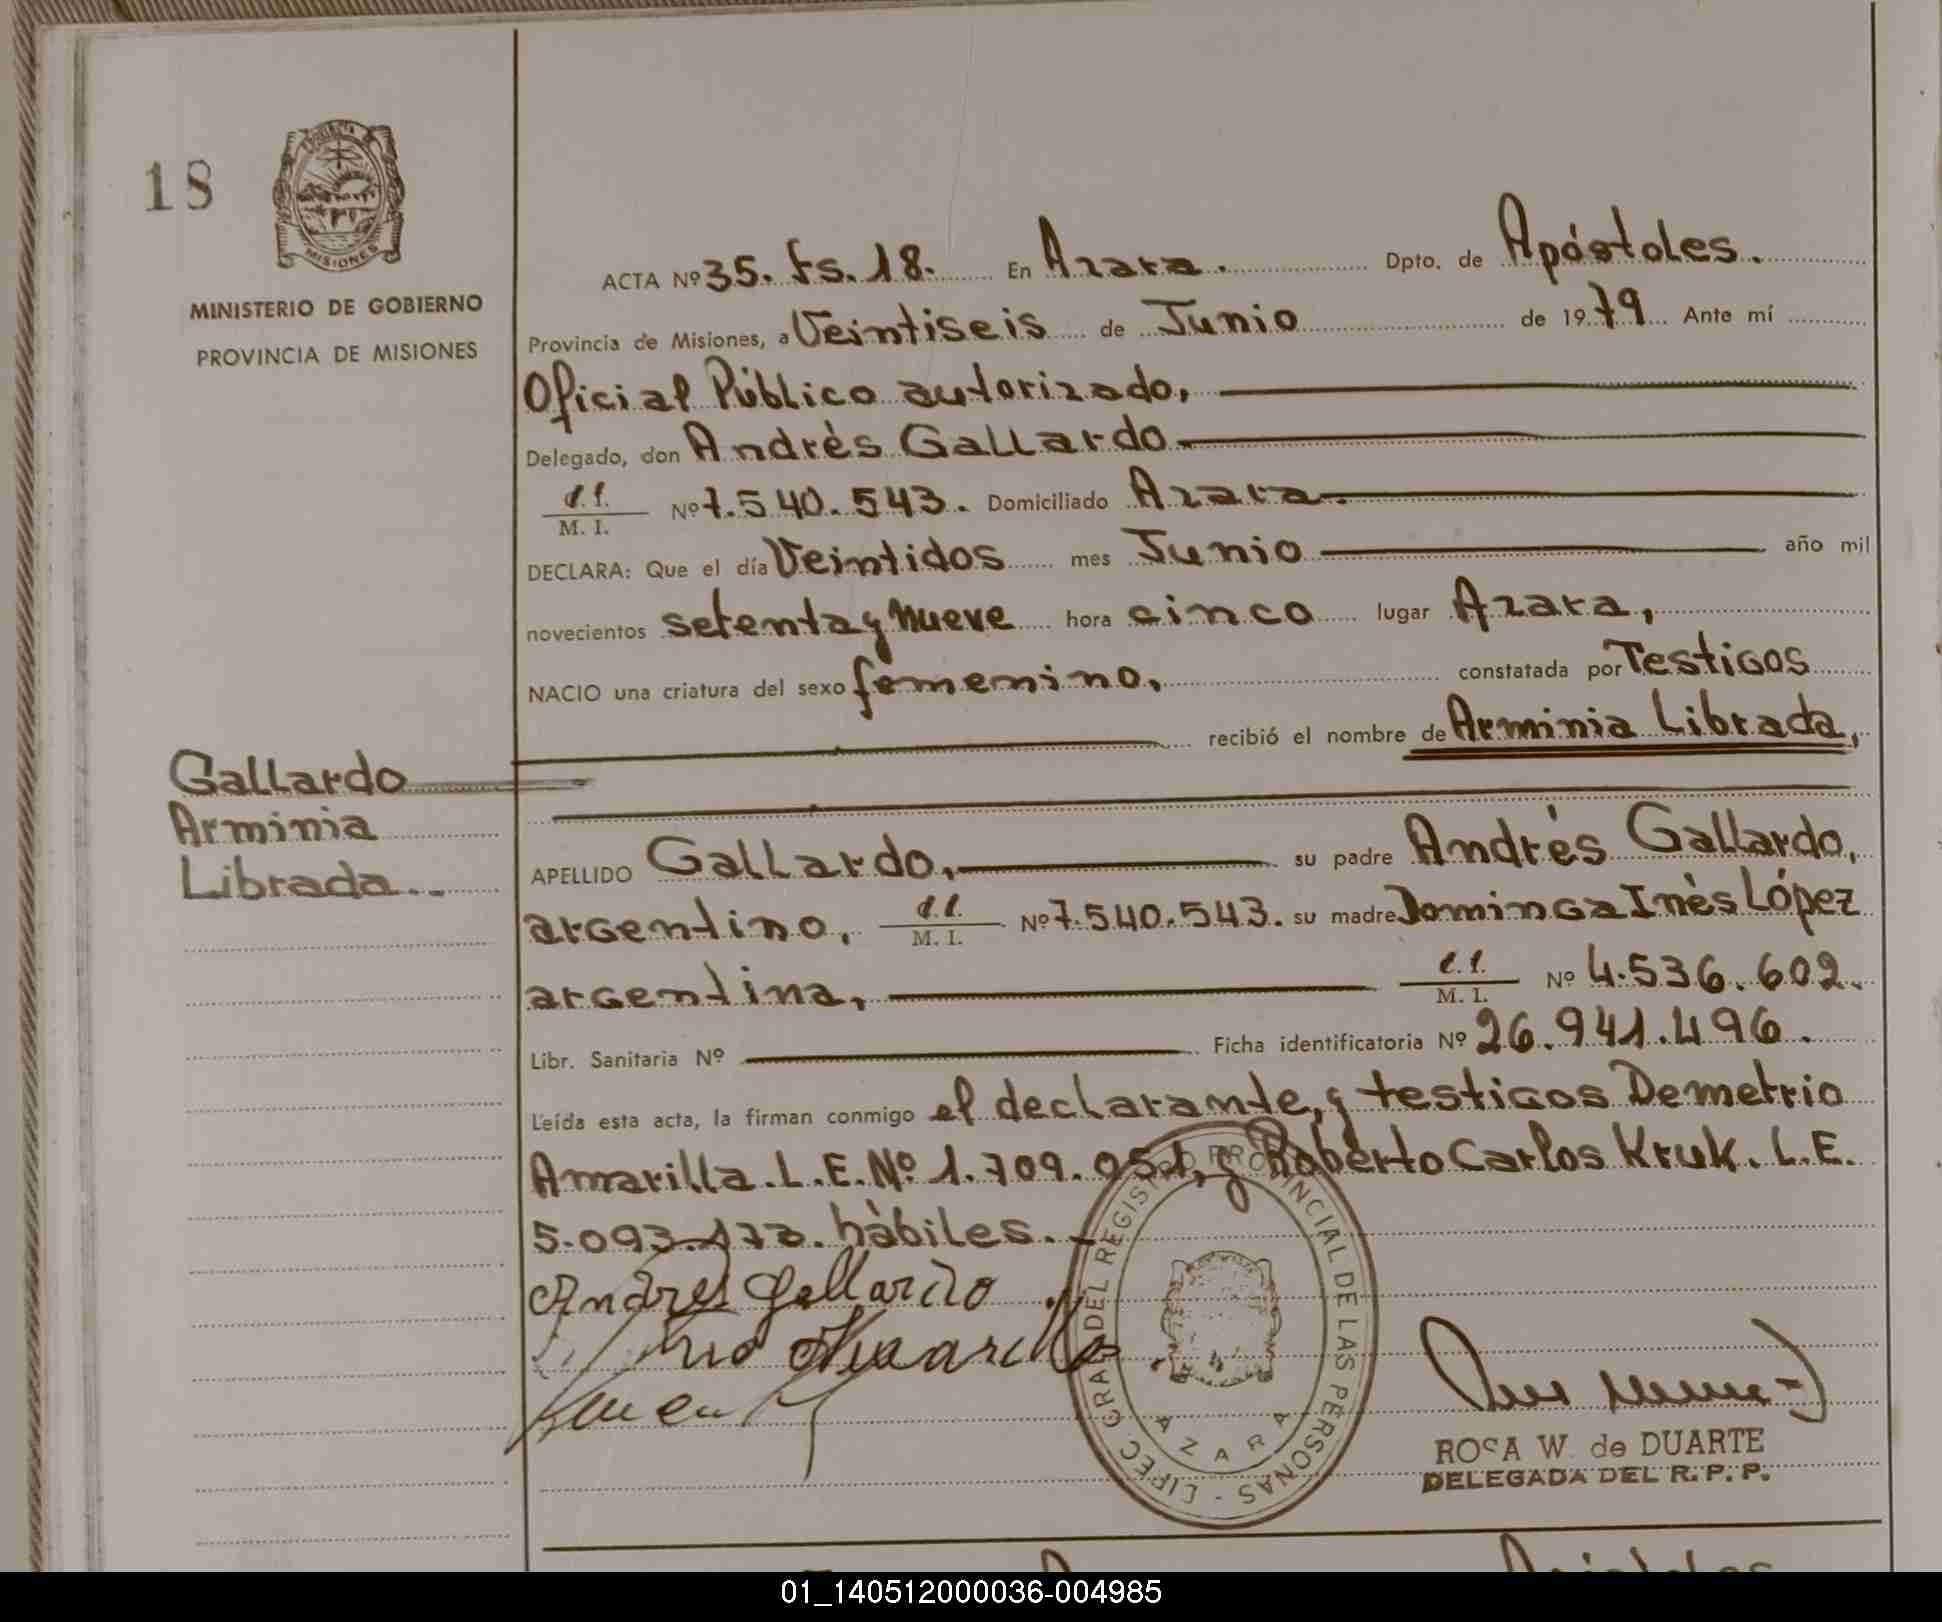 18
MISIONES
MINISTERIO DE GOBIERNO
PROVINCIA DE MISIONES
ACTA Nº 35. fs. 18. En Azara. Dpto. de Apóstoles.
Provincia de Misiones, a Veintiseis de Junio de 1979 Ante mí
Oficial Público autorizado,
Delegado, don Andrès Gallardo
M. I. Nº 7.540.543. Domiciliado Azara.
DECLARA: Que el día Veintidos mes Junio año mil
novecientos setenta y nueve hora cinco lugar Azara,
NACIO una criatura del sexo femenino, constatada por Testigos
recibió el nombre de Arminia Librada,
Gallardo
Arminia
Librada..
APELLIDO Gallardo, su padre Andrés Gallardo,
argentino, M. I. Nº 7.540.543. su madre Dominga Inès López
argentina, M. I. Nº 4.536.602.
Libr. Sanitaria Nº Ficha identificatoria Nº 26.941.496.
Leída esta acta, la firman conmigo el declarante, y testigos Demetrio
Amarilla. L.E. Nº 1.709.051, y Roberto Carlos Kruk. L.E.
5.093.173. hàbiles.
Andres Gallardo
Amarilla
DEL REGISTRO PROVINCIAL DE LAS PERSONAS -
AZARA
ROSA W. de DUARTE
DELEGADA DEL R. P. P.
01_140512000036-004985